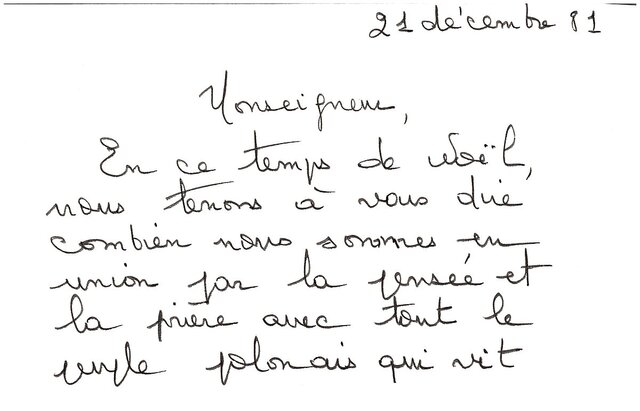 21 décembre 81
Monseigneur,
En ce temps de Noël,
nous tenons à vous dire
combien nous sommes en
union par la pensée et
la prière avec tout le
peuple polonais qui vit